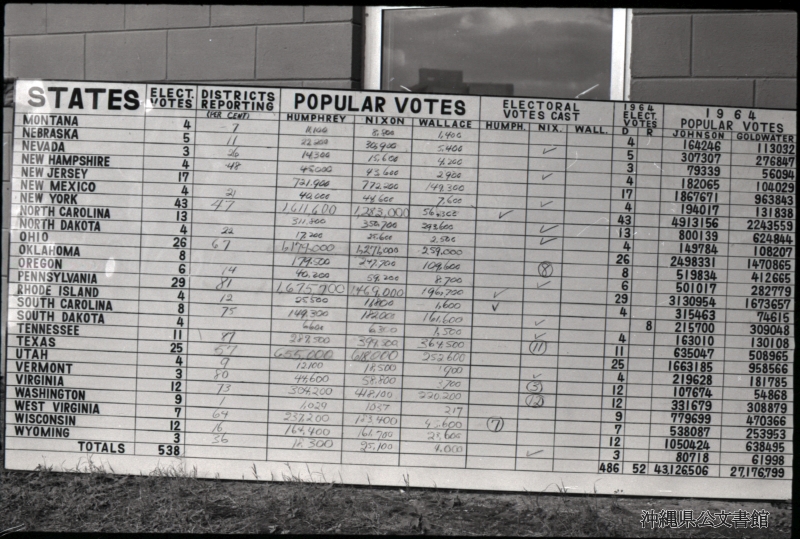 STATES ELECT. VOTES DISTRICTS REPORTING (PER CENT) POPULAR VOTES ELECTORAL VOTES CAST 1964 ELECT. VOTES 1964 POPULAR VOTES
HUMPHREY NIXON WALLACE HUMPH. NIX. WALL. D R JOHNSON GOLDWATER
MONTANA 4 7 8,100 8,800 1,400 4 164246 113032
NEBRASKA 5 11 22,200 30,900 5,400 ✓ 5 307307 276847
NEVADA 3 26 14,300 15,600 4,200 3 79339 56094
NEW HAMPSHIRE 4 48 2,900 ✓ 4 182065 104029
NEW JERSEY 17 721,900 772,200 149,300 17 1867671 963843
NEW MEXICO 4 21 40,000 48,600 7,600 ✓ 4 194017 131838
NEW YORK 43 47 1,611,600 1,283,000 ✓ 43 4913156 2243559
NORTH CAROLINA 13 311,800 350,700 293,600 ✓ 13 800139 624844
NORTH DAKOTA 4 22 17,200 25,600 2,500 ✓ 4 149784 108207
OHIO 26 67 1,179,000 1,271,000 259,000 26 2498331 1470865
OKLAHOMA 8 179,500 247,700 109,600 8 8 519834 412665
OREGON 6 14 40,200 58,200 8,700 ✓ 6 501017 282779
PENNSYLVANIA 29 81 1,675,700 1,469,000 196,700 ✓ 29 3130954 1673657
RHODE ISLAND 4 12 25,500 11,800 1,600 ✓ 4 315463 74615
SOUTH CAROLINA 8 75 149,300 182,000 161,600 ✓ 8 215700 309048
SOUTH DAKOTA 4 6600 6300 1,500 ✓ 4 163010 130108
TENNESSEE 11 87 288,500 399,800 364,500 11 11 635047 508965
TEXAS 25 57 655,000 618,000 252,600 25 1663185 958566
UTAH 4 9 12,100 18,500 1,900 ✓ 4 219628 181785
VERMONT 3 80 48,600 58,800 3,700 3 3 107674 54868
VIRGINIA 12 73 304,200 418,100 220,200 12 12 331679 308879
WASHINGTON 9 1 1,029 1037 217 9 779699 470366
WEST VIRGINIA 7 64 237,200 45,600 7 7 538087 253953
WISCONSIN 12 16 164,400 12 1050424 638495
WYOMING 3 36 18,300 25,100 4,000 ✓ 3 80718 61998
TOTALS 538 486 52 43,126,506 27,176,799
沖縄県公文書館